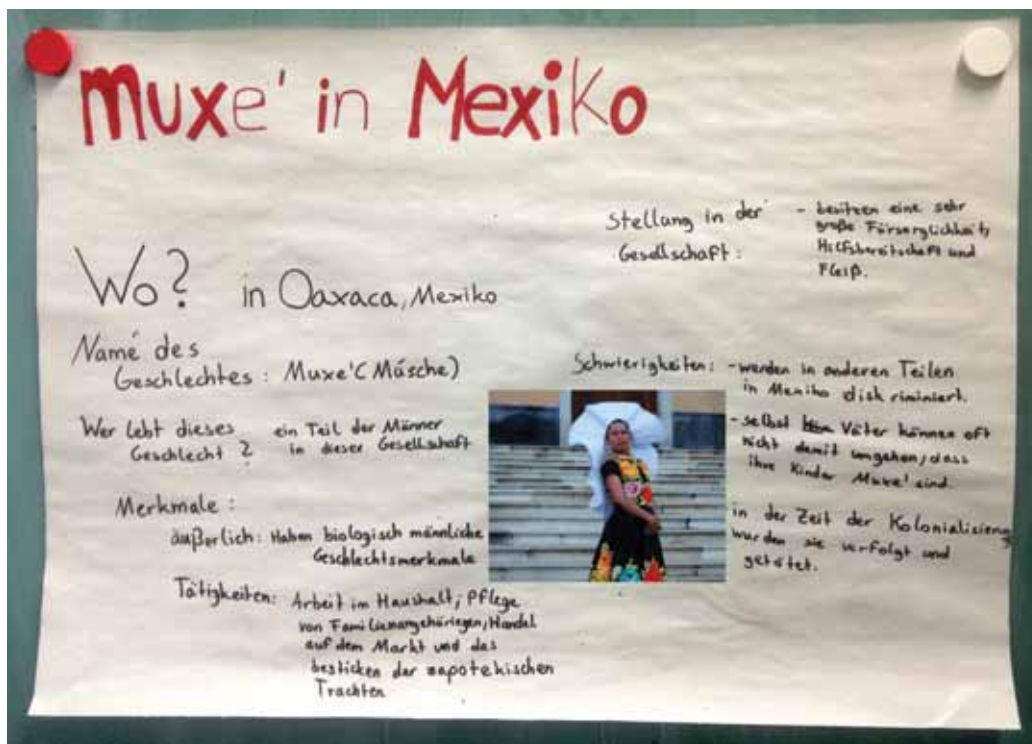 Muxe' in Mexiko
Wo? in Oaxaca, Mexiko
Name des
Geschlechtes: Muxe' (Másche)
Wer lebt dieses
Geschlecht?
ein Teil der Männer
in dieser Gesellschaft
Merkmale:
äußerlich: Haben biologisch männliche
Geschlechtsmerkmale
Tätigkeiten: Arbeit im Haushalt, Pflege
von Familienangehöriegen, Handel
auf dem Markt und das
besticken der zapotekischen
Trachten
Stellung in der
Gesellschaft:
- besitzen eine sehr
große Fürsorglichkeit,
Hilfsbereitschaft und
Fleiß.
Schwierigkeiten: - werden in anderen Teilen
in Mexiko diskriminiert.
- selbst Väter können oft
nicht damit umgehen, dass
ihre Kinder Muxe' sind.
in der Zeit der Kolonialisierung
wurden sie verfolgt und
getötet.